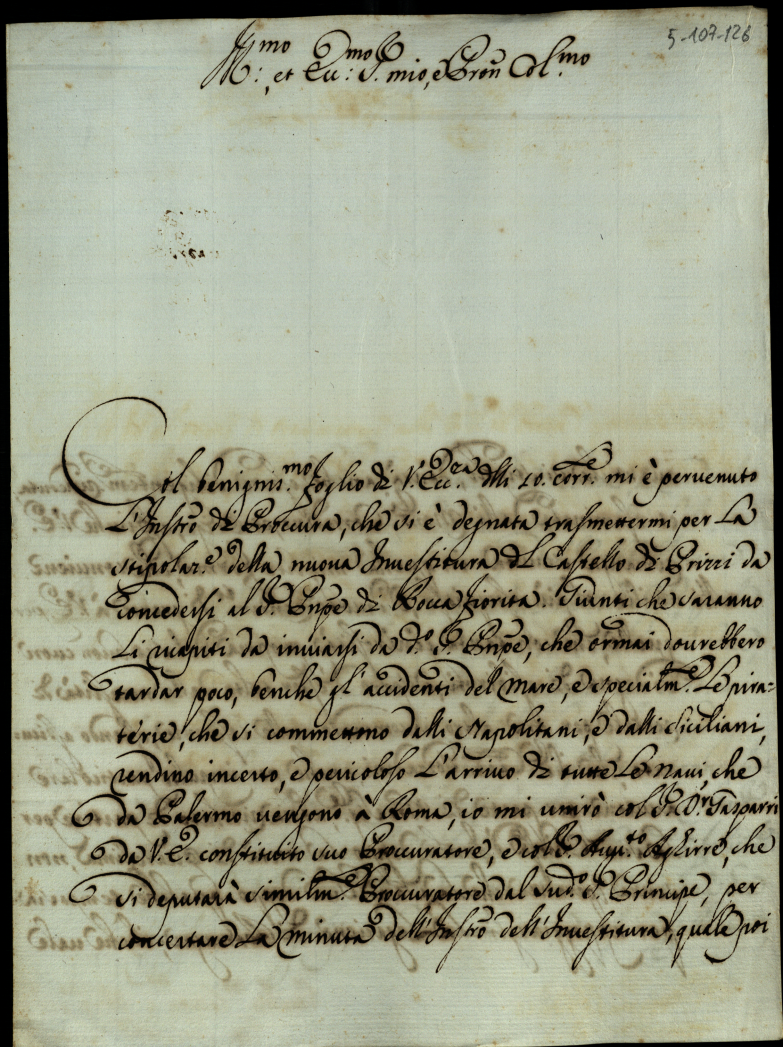 5-107-126
Ill:mo, et Ecc:mo S.r mio, e Pron Col:mo
Col benignis.mo foglio di V.Ecc.za dlli 10. corr.e mi è pervenuto
L'Instrō di Proccura, che si è degnata trasmettermi per La
stipolaz.e della nuova Investitura dl Castello di Prizzi da
concedersi al S.r Pnpe di Rocca fiorita. Giunti che saranno
Li ricapiti da inviarsi da d.o S.r Pnpe, che ormai dovrebbero
tardar poco, benche gl'accidenti del mare, e specialm.e Le pira=
terie, che si commettono dalli Napolitani, e dalli Siciliani,
rendino incerto, e pericoloso L'arrivo di tutte Le navi, che
da Palermo vengono à Roma, io mi unirò col S.r D.r Gasparri
da V.E. constituito suo Proccuratore, e col S.r Aug.to Aghirre, che
si deputarà similm.e Proccuratore dal sud.o S.r Principe, per
concertare La minuta dell'Instrō dell'Investitura, quale poi